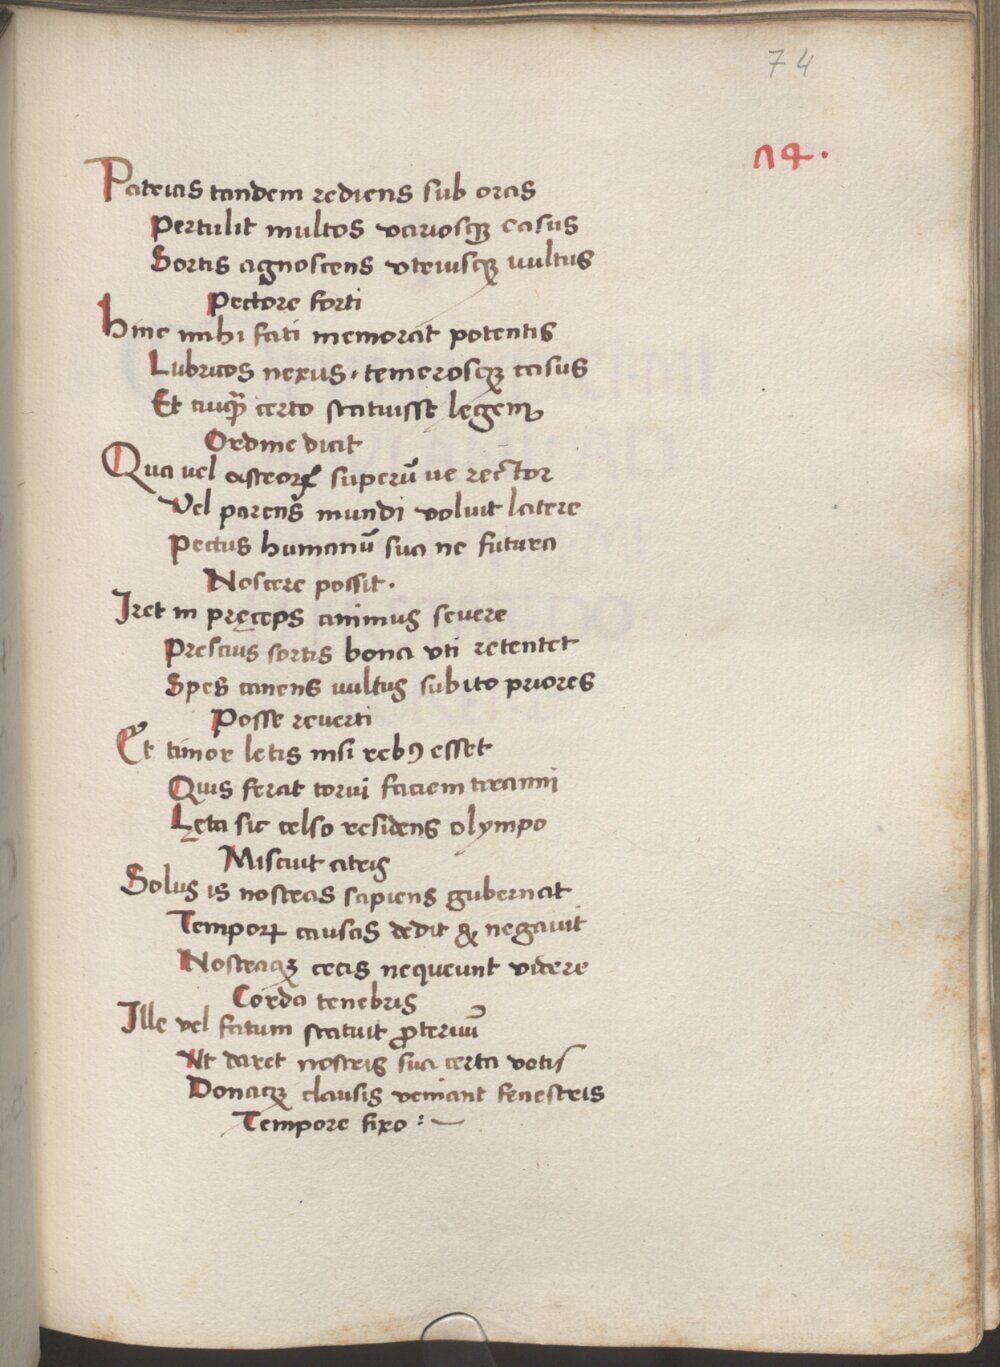 74
74.
Patrias tandem rediens sub oras
Pertulit multos variosqꝫ casus
Sortis agnoscens vtriusqꝫ uultus
Pectore forti
Hinc mihi fati memorat potentis
Lubricos nexus, temerosqꝫ casus
Et cuiqꝫ̃ certo statuisse legem
Ordine dicit
Qua uel astrorꝝ superū ue rector
Vel parens mundi voluit latere
Pectus humanū sua ne futura
Noscere possit.
Iret in pręceps animus seuere
Prescius sortis bona vti retentet
Spes canens uultus subito priores
Posse reuerti
Et timor letis nisi rebꝰ esset
Quis ferat torui faciem tiranni
Lęta sic celso residens olympo
Miscuit atris
Solus is nostras sapiens gubernat
Temporꝝ causas dedit & negauit
Nostraqꝫ cecis nequeunt videre
Corda tenebris
Ille vel fatum statuit ꝓteruū
Ut daret nostris sua certa votis
Donaqꝫ clausis veniant fenestris
Tempore fixo :~